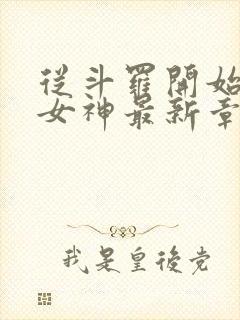 從斗羅開始
女神最新章
我是皇後党